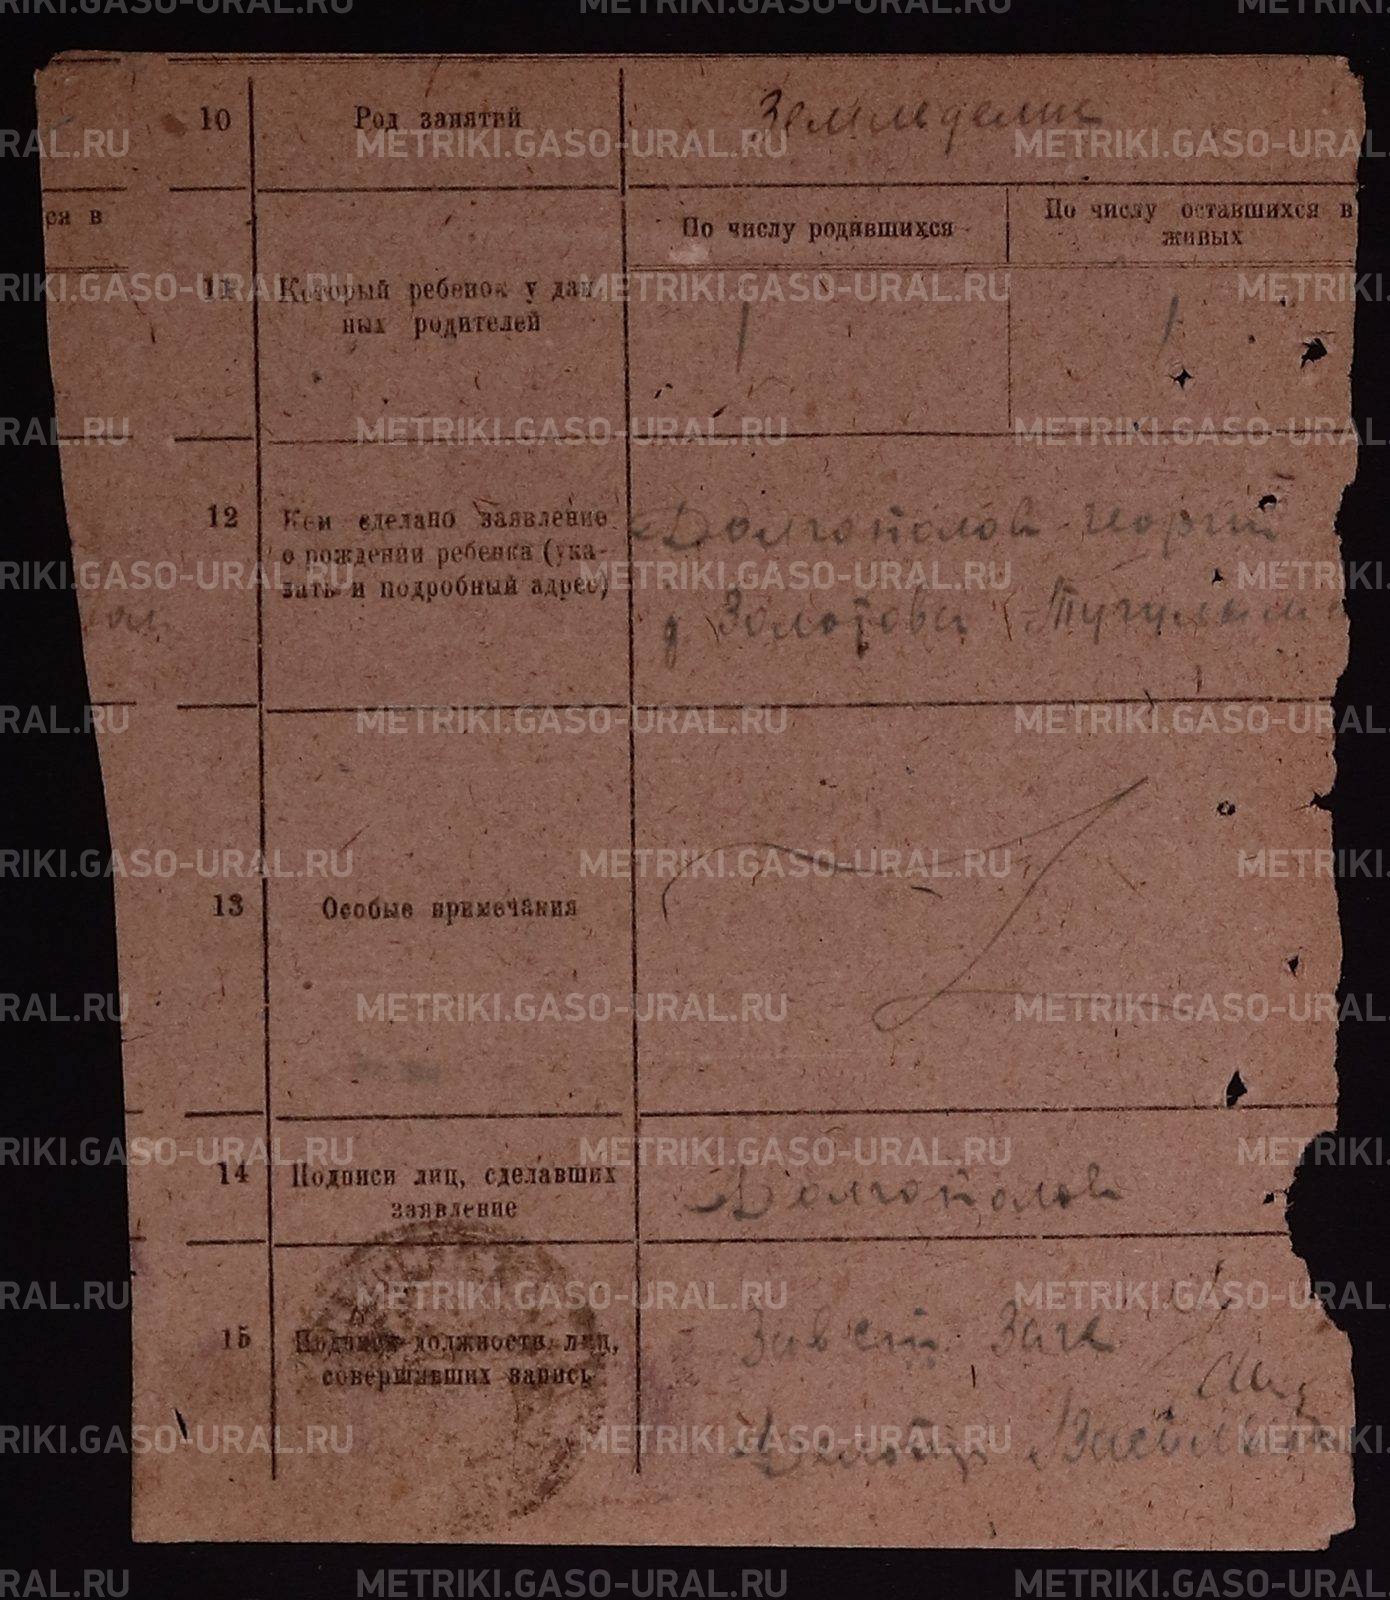 10 Род занятий Земледелие
ся в
По числу родившихся
По числу оставшихся в
живых
11 Который ребенок у дан-
ных родителей
1 1
12 Кем сделано заявление
о рождении ребенка (ука-
зать и подробный адрес)
Долгополов Георгий
д. Золотова
13 Особые примечания
14 Подписи лиц, сделавших
заявление
Долгополов
15 Подписи должности. лиц,
совершивших запись
Завст. Загс
Делопр
METRIKI.GASO-URAL.RU